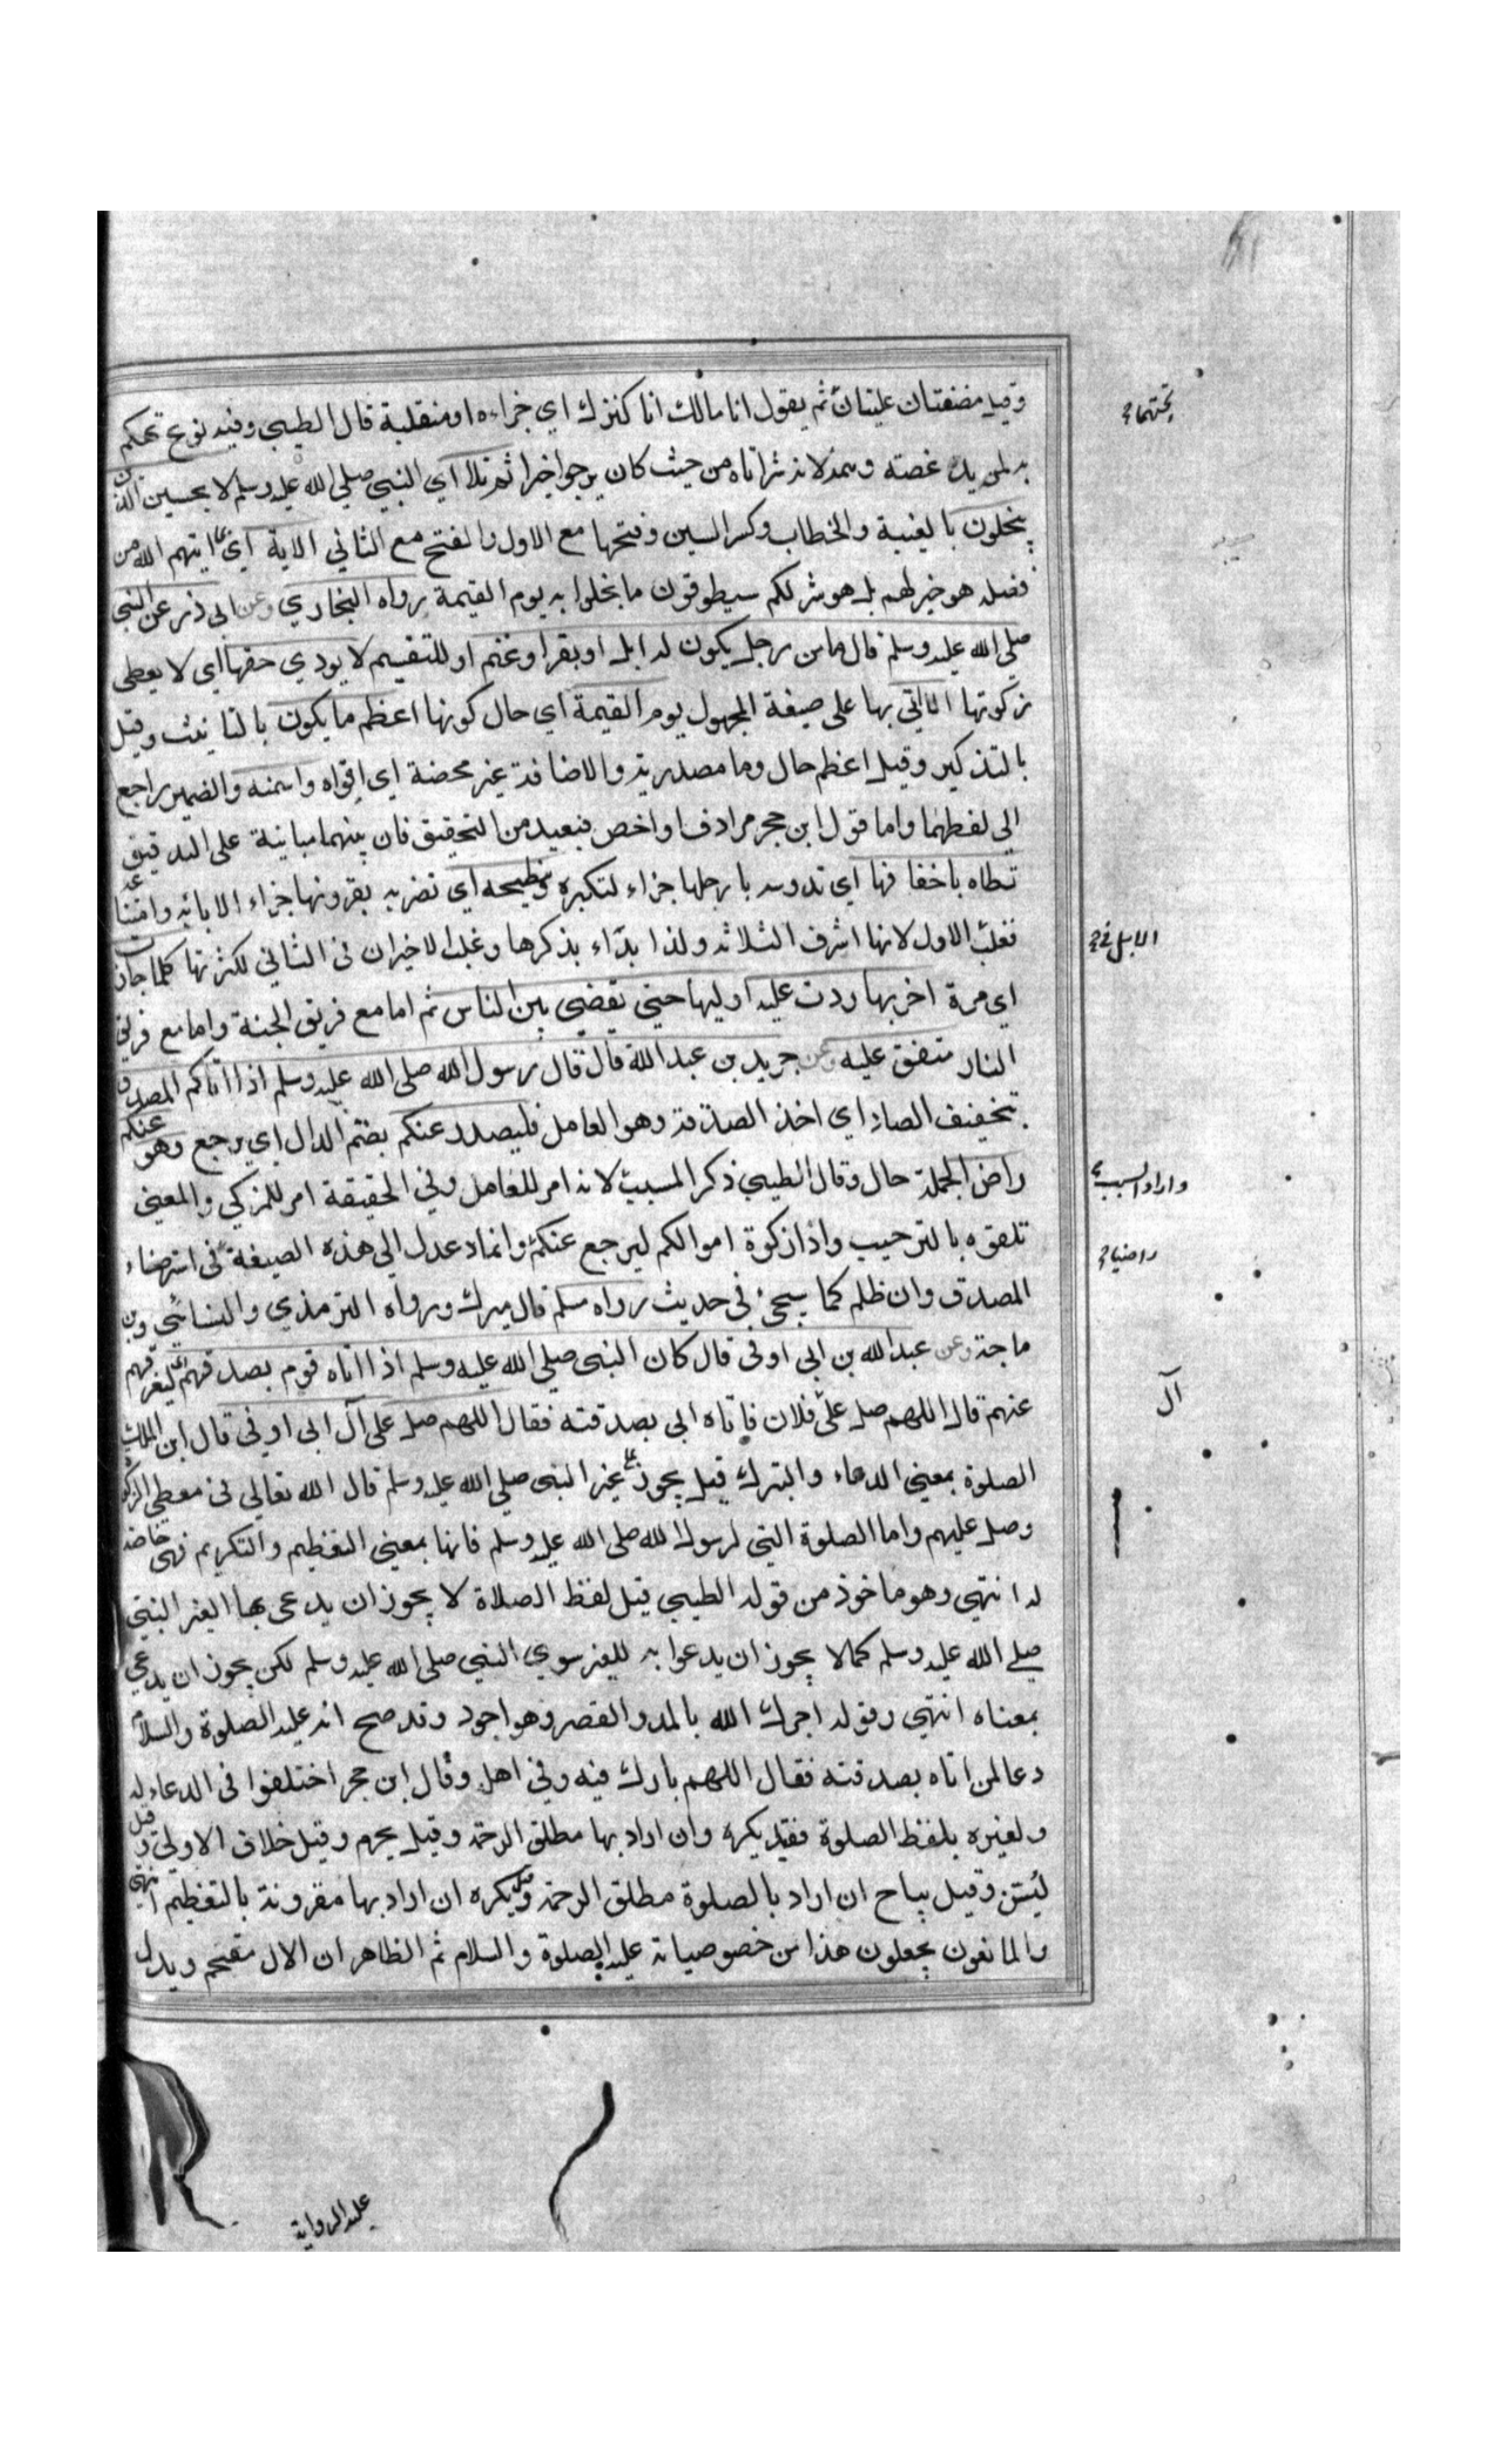 وقيل مضغتان عليتان ثم يقول انا مالك انا كنزك اي جزاءه او منقلبة قال الطيبي وفيه نوع تهكم
تحتهما
به لمزيد غصته وهمه لانه شر اتاه من حيث كان يرجوا خيرا ثم تلا اي النبي صلي الله عليه وسلم لا يحسبن الذين
يبخلون بالغيبة والخطاب وكسر السين وفتحها مع الاول والفتح مع الثاني الاية اي بما اتيهم الله من
فضله هو خير لهم بل هو شر لكم سيطوقون ما بخلوا به يوم القيمة رواه البخاري وعن ابي ذر عن النبي
صلي الله عليه وسلم قال ما من رجل يكون له ابل او بقر او غنم او للتقسيم لا يودي حقها اي لا يعطي
زكوتها الا اتي بها على صيغة المجهول يوم القيمة اي حال كونها اعظم ما يكون بالتانيث وقيل
بالتذكير وقيل اعظم حال وما مصدرية والاضافة غير محضة اي اقواه واسمنه والضمير راجع
الى لفظهما واما قول ابن حجر مرادف او اخص فبعيد من التحقيق فان بينهما مباينة على التدقيق
تطاه باخفافها اي تدوسه بارجلها جزاء لتكبره وتنطحه اي تضربه بقرونها جزاء لابائه وامتناعه
فغلب الاول لانها اشرف الثلاثة ولذا بداء بذكرها وغلب الاخيران في الثاني لكثرتها كلما جازت
الابل في
اي مرة اخريها ردت عليه اوليها حتي يقضي بين الناس ثم اما مع فريق الجنة واما مع فريق
النار متفق عليه وعن جرير بن عبد الله قال قال رسول الله صلى الله عليه وسلم اذا اتاكم المصدق
بتخفيف الصاد اي اخذ الصدقة وهو العامل فليصدر عنكم بضم الدال اي يرجع وهو عنكم
راض الجملة حال وقال الطيبي ذكر المسبب لانه امر للعامل وفي الحقيقة امر للمزكي والمعنى
واراد السبب
تلقوه بالترحيب واداء زكوة اموالكم ليرجع عنكم وانما عدل الى هذه الصيغة في استرضاء
راضيا
المصدق وان ظلم كما سيجئ في حديث رواه مسلم قال ميرك ورواه الترمذي والنسائي وبن
ماجة وعن عبد الله بن ابي اوفى قال كان النبي صلي الله عليه وسلم اذا اتاه قوم بصدقتهم اي ليفرقهم
عنهم قال اللهم صل على فلان فاتاه ابي بصدقته فقال اللهم صل على آل ابي اوفى قال ابن الملك
آل
الصلوة بمعنى الدعاء والتبرك قيل يجوز على غير النبي صلي الله عليه وسلم قال الله تعالى في معطي الزكوة
وصل عليهم واما الصلوة التي لرسول الله صلى الله عليه وسلم فانها بمعنى التعظيم والتكريم فهي خاصة
له انتهى وهو ماخوذ من قوله الطيبي قيل لفظ الصلاة لا يجوز ان يدعى بها لغير النبي
صلى الله عليه وسلم كما لا يجوز ان يدعوا به للغير سوي النبي صلى الله عليه وسلم لكن يجوز ان يدعي
بمعناه انتهى وقوله اجرك الله بالمد والقصر وهو اجود وقد صح انه عليه الصلوة والسلام
دعا لمن اتاه بصدقته فقال اللهم بارك فيه وفي اهله وقال ابن حجر اختلفوا في الدعاء له
ولغيره بلفظ الصلوة فقيل يكره وان اراد بها مطلق الرحمة وقيل يحرم وقيل خلاف الاولى وقيل
ليسن وقيل يباح ان اراد بالصلوة مطلق الرحمة وقيل يكره ان اراد بها مقرونة بالتعظيم انتهى
والمانعون يجعلون هذا من خصوصياته عليه الصلوة والسلام ثم الظاهر ان الال مقحم ويدل
عليه الرواية